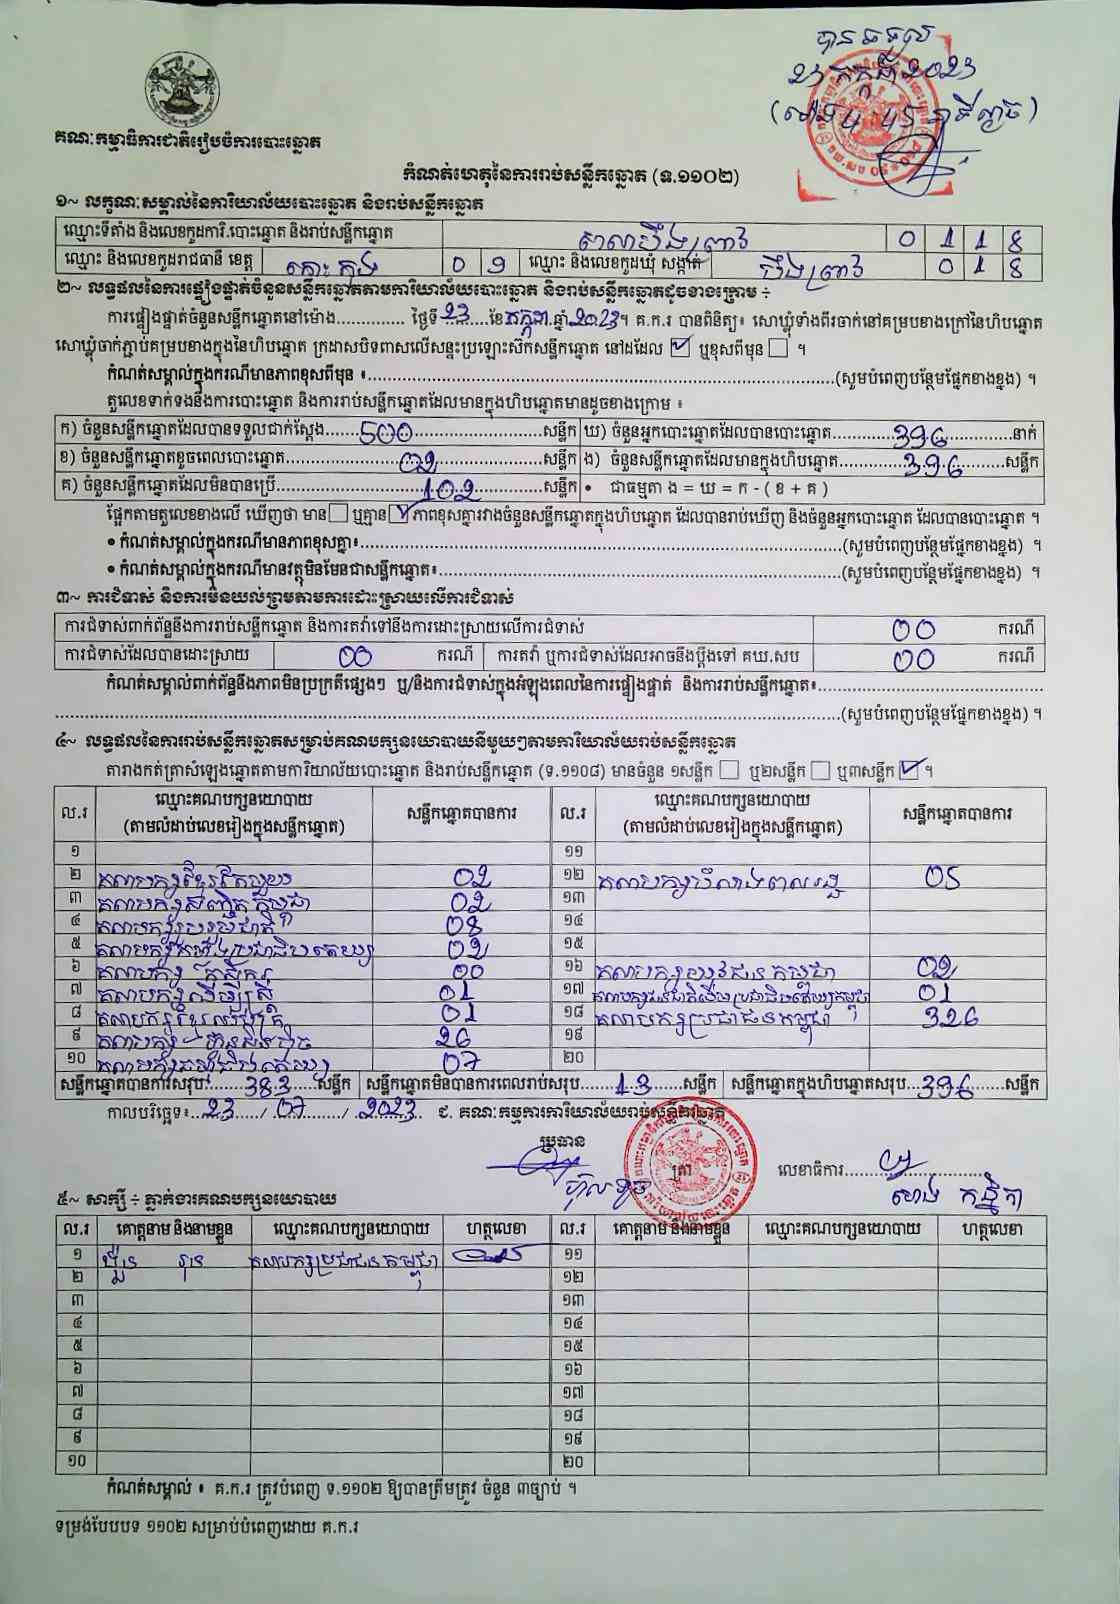 បានទទួល
23 កក្កដា 2023
គណៈកម្មាធិការជាតិរៀបចំការបោះឆ្នោត
កំណត់ហេតុនៃការរាប់សន្លឹកឆ្នោត (ទ.១១០២)
១~ លក្ខណៈសម្គាល់នៃការិយាល័យបោះឆ្នោត និងរាប់សន្លឹកឆ្នោត
ឈ្មោះទីតាំង និងលេខកូដការិ.បោះឆ្នោត និងរាប់សន្លឹកឆ្នោត សាលាបឹងព្រាវ 0 1 1 8
ឈ្មោះ និងលេខកូដរាជធានី ខេត្ត កោះកុង 0 9 ឈ្មោះ និងលេខកូដឃុំ សង្កាត់ បឹងព្រាវ 0 1 8
២~ លទ្ធផលនៃការផ្ទៀងផ្ទាត់ចំនួនសន្លឹកឆ្នោតតាមការិយាល័យបោះឆ្នោត និងរាប់សន្លឹកឆ្នោតដូចខាងក្រោម ÷
ការផ្ទៀងផ្ទាត់ចំនួនសន្លឹកឆ្នោតនៅម៉ោង............. ថ្ងៃទី 23 ខែ កក្កដា ឆ្នាំ 2023។ គ.ក.រ បានពិនិត្យ៖ សោឃ្លុំទាំងពីរចាក់នៅគម្របខាងក្រៅនៃហិបឆ្នោត
សោឃ្លុំចាក់ភ្ជាប់គម្របខាងក្នុងនៃហិបឆ្នោត ក្រដាសបិទពាសលើសន្ទះប្រឡោះស៊កសន្លឹកឆ្នោត នៅដដែល ☑ ឬខុសពីមុន ☐ ។
កំណត់សម្គាល់ក្នុងករណីមានភាពខុសពីមុន ៖........(សូមបំពេញបន្ថែមផ្នែកខាងខ្នង) ។
តួលេខទាក់ទងនឹងការបោះឆ្នោត និងការរាប់សន្លឹកឆ្នោតដែលមានក្នុងហិបឆ្នោតមានដូចខាងក្រោម ៖
ក) ចំនួនសន្លឹកឆ្នោតដែលបានទទួលជាក់ស្តែង.......500.......សន្លឹក ឃ) ចំនួនអ្នកបោះឆ្នោតដែលបានបោះឆ្នោត.......396.......នាក់
ខ) ចំនួនសន្លឹកឆ្នោតខូចពេលបោះឆ្នោត.......02.......សន្លឹក ង) ចំនួនសន្លឹកឆ្នោតដែលមានក្នុងហិបឆ្នោត.......396.......សន្លឹក
គ) ចំនួនសន្លឹកឆ្នោតដែលមិនបានប្រើ.......102.......សន្លឹក • ជាធម្មតា ង = ឃ = ក - ( ខ + គ )
ផ្អែកតាមតួលេខខាងលើ ឃើញថា មាន ☐ ឬគ្មាន ☑ ភាពខុសគ្នារវាងចំនួនសន្លឹកឆ្នោតក្នុងហិបឆ្នោត ដែលបានរាប់ឃើញ និងចំនួនអ្នកបោះឆ្នោត ដែលបានបោះឆ្នោត ។
• កំណត់សម្គាល់ក្នុងករណីមានភាពខុសគ្នា៖........(សូមបំពេញបន្ថែមផ្នែកខាងខ្នង) ។
• កំណត់សម្គាល់ក្នុងករណីមានវត្ថុមិនមែនជាសន្លឹកឆ្នោត៖........(សូមបំពេញបន្ថែមផ្នែកខាងខ្នង) ។
៣~ ការជំទាស់ និងការមិនយល់ព្រមតាមការដោះស្រាយលើការជំទាស់
ការជំទាស់ពាក់ព័ន្ធនឹងការរាប់សន្លឹកឆ្នោត និងការតវ៉ាទៅនឹងការដោះស្រាយលើការជំទាស់ 00 ករណី
ការជំទាស់ដែលបានដោះស្រាយ 00 ករណី ការតវ៉ា ឬការជំទាស់ដែលអាចនឹងប្តឹងទៅ គឃ.សប 00 ករណី
កំណត់សម្គាល់ពាក់ព័ន្ធនឹងភាពមិនប្រក្រតីផ្សេងៗ ឬ/និងការជំទាស់ក្នុងអំឡុងពេលនៃការផ្ទៀងផ្ទាត់ និងការរាប់សន្លឹកឆ្នោត៖........
........(សូមបំពេញបន្ថែមផ្នែកខាងខ្នង) ។
៤~ លទ្ធផលនៃការរាប់សន្លឹកឆ្នោតសម្រាប់គណបក្សនយោបាយនីមួយៗតាមការិយាល័យរាប់សន្លឹកឆ្នោត
តារាងកត់ត្រាសំឡេងឆ្នោតតាមការិយាល័យបោះឆ្នោត និងរាប់សន្លឹកឆ្នោត (ទ.១១០៨) មានចំនួន ១សន្លឹក ☐ ឬ២សន្លឹក ☐ ឬ៣សន្លឹក ☑ ។
ល.រ ឈ្មោះគណបក្សនយោបាយ (តាមលំដាប់លេខរៀងក្នុងសន្លឹកឆ្នោត) សន្លឹកឆ្នោតបានការ ល.រ ឈ្មោះគណបក្សនយោបាយ (តាមលំដាប់លេខរៀងក្នុងសន្លឹកឆ្នោត) សន្លឹកឆ្នោតបានការ
១ ១១
២ គណបក្សខ្មែរតែមួយ 02 ១២ គណបក្សសំបុកឃ្មុំ 05
៣ គណបក្ស កម្ពុជា 02 ១៣
៤ គណបក្ស ជាតិ 08 ១៤
៥ គណបក្ស ប្រជាធិបតេយ្យ 02 ១៥
៦ គណបក្ស កសិករ 00 ១៦ គណបក្សយុវជនកម្ពុជា 02
៧ គណបក្សសិទ្ធិស្ត្រី 01 ១៧ គណបក្សជនជាតិដើមប្រជាធិបតេយ្យកម្ពុជា 01
៨ គណបក្សខ្មែរ 01 ១៨ គណបក្សប្រជាជនកម្ពុជា 326
៩ គណបក្ស ហ្វ៊ុនស៊ិនប៉ិច 26 ១៩
១០ គណបក្ស ប្រជាធិបតេយ្យ 07 ២០
សន្លឹកឆ្នោតបានការសរុប.......383.......សន្លឹក សន្លឹកឆ្នោតមិនបានការពេលរាប់សរុប.......13.......សន្លឹក សន្លឹកឆ្នោតក្នុងហិបឆ្នោតសរុប.......396.......សន្លឹក
កាលបរិច្ឆេទ៖ 23 / 07 / 2023 ជ. គណៈកម្មការការិយាល័យរាប់សន្លឹកឆ្នោត
ប្រធាន ត្រា លេខាធិការ........
៥~ សាក្សី ÷ ភ្នាក់ងារគណបក្សនយោបាយ
ល.រ គោត្តនាម និងនាមខ្លួន ឈ្មោះគណបក្សនយោបាយ ហត្ថលេខា ល.រ គោត្តនាម និងនាមខ្លួន ឈ្មោះគណបក្សនយោបាយ ហត្ថលេខា
១ គណបក្សប្រជាជនកម្ពុជា ១១
២ ១២
៣ ១៣
៤ ១៤
៥ ១៥
៦ ១៦
៧ ១៧
៨ ១៨
៩ ១៩
១០ ២០
កំណត់សម្គាល់ ៖ គ.ក.រ ត្រូវបំពេញ ទ.១១០២ ឱ្យបានត្រឹមត្រូវ ចំនួន ៣ច្បាប់ ។
ទម្រង់បែបបទ ១១០២ សម្រាប់បំពេញដោយ គ.ក.រ